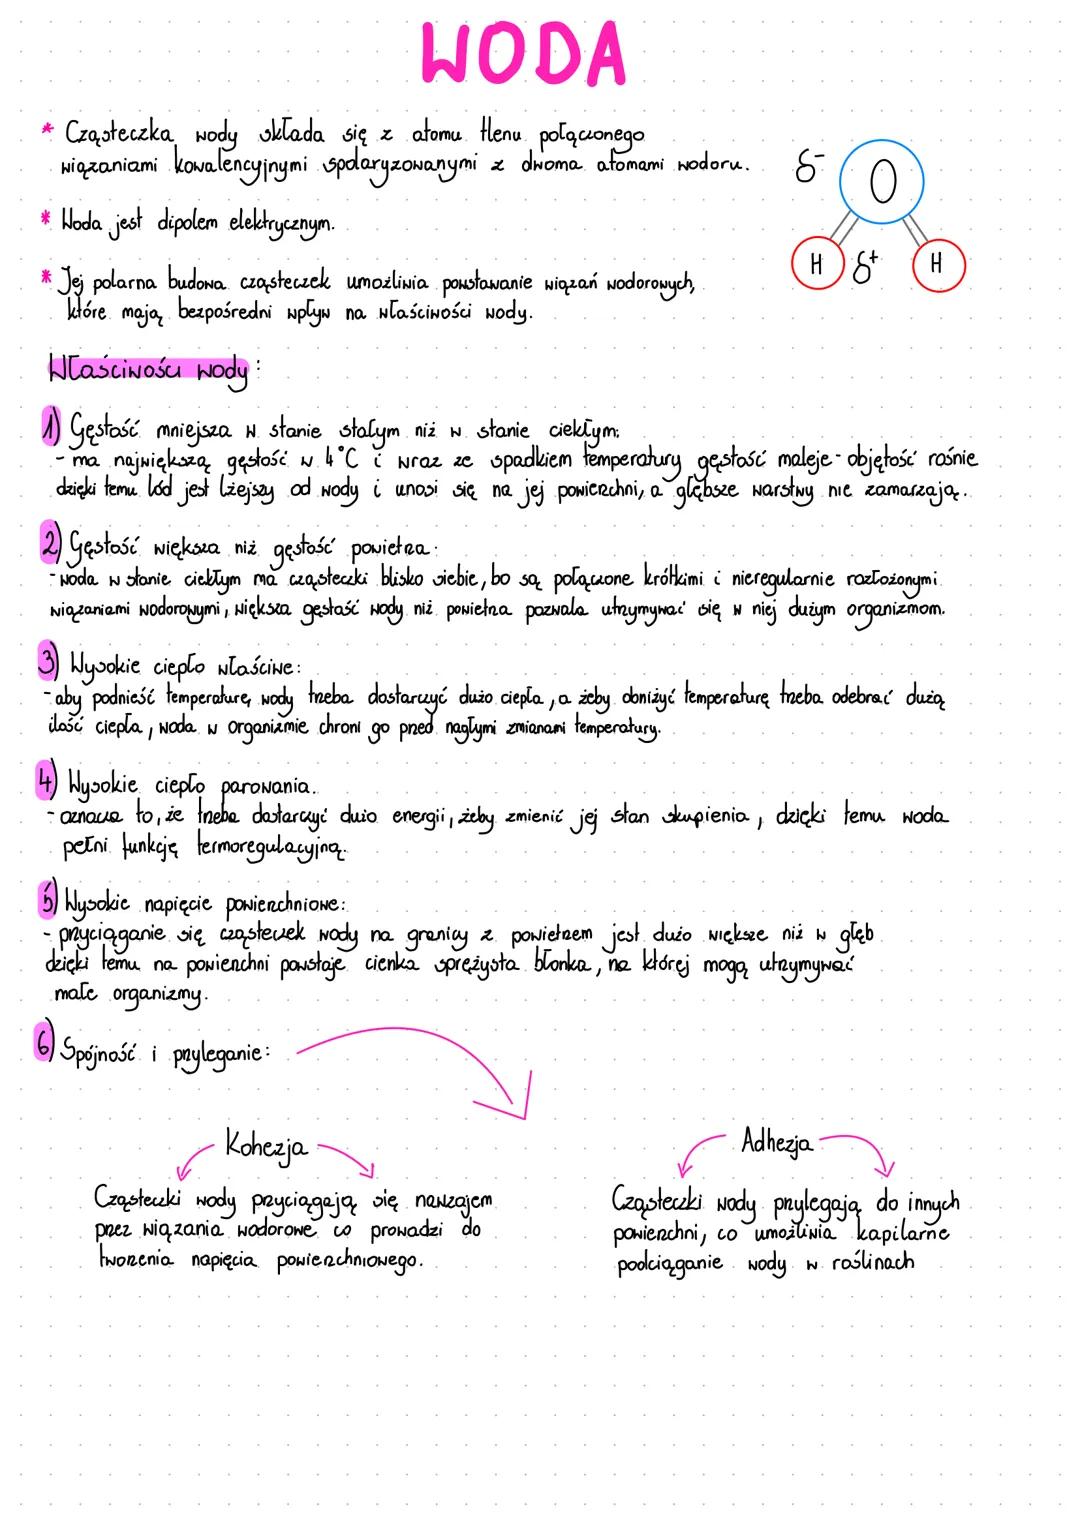 WODA
* Cząsteczka wody składa się z atomu tlenu połączonego
wiązaniami kowalencyjnymi spolaryzowanymi z dwoma atomami wodoru.
δ- O
H δ+ H
* Woda jest dipolem elektrycznym.
* Jej polarna budowa cząsteczek umożliwia powstawanie wiązań wodorowych,
które mają bezpośredni wpływ na właściwości wody.
Właściwości wody:
1) Gęstość mniejsza w stanie stałym niż w stanie ciekłym:
- ma największą gęstość w 4°C i wraz ze spadkiem temperatury gęstość maleje - objętość rośnie
dzięki temu lód jest lżejszy od wody i unosi się na jej powierzchni, a głębsze warstwy nie zamarzają.
2) Gęstość większa niż gęstość powietrza:
- woda w stanie ciekłym ma cząsteczki blisko siebie, bo są połączone krótkimi i nieregularnie rozłożonymi
wiązaniami wodorowymi, większa gęstość wody niż powietrza pozwala utrzymywać się w niej dużym organizmom.
3) Wysokie ciepło właściwe:
- aby podnieść temperaturę wody trzeba dostarczyć dużo ciepła, a żeby obniżyć temperaturę trzeba odebrać dużą
ilość ciepła, woda w organizmie chroni go przed nagłymi zmianami temperatury.
4) Wysokie ciepło parowania.
- oznacza to, że trzeba dostarczyć dużo energii, żeby zmienić jej stan skupienia, dzięki temu woda
pełni funkcję termoregulacyjną.
5) Wysokie napięcie powierzchniowe:
- przyciąganie się cząsteczek wody na granicy z powietrzem jest dużo większe niż w głęb
dzięki temu na powierzchni powstaje cienka sprężysta błonka, na której mogą utrzymywać
małe organizmy.
6) Spójność i przyleganie:
Kohezja
Cząsteczki wody przyciągają się nawzajem
przez wiązania wodorowe co prowadzi do
tworzenia napięcia powierzchniowego.
Adhezja
Cząsteczki wody przylegają do innych
powierzchni, co umożliwia kapilarne
podciąganie wody w roślinach